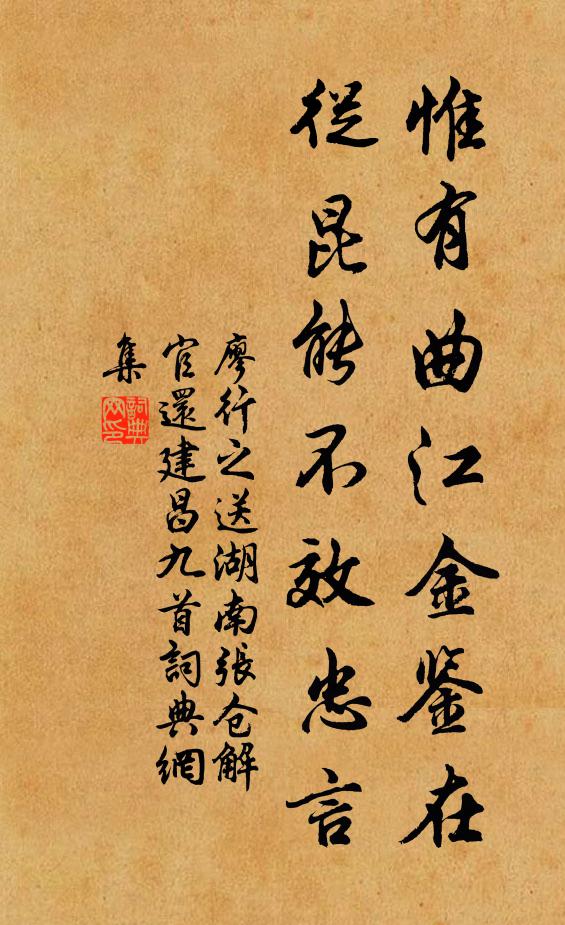 惟有曲江金鉴在
從昆能不效忠言
廖行之送湖南張仓解
官還建昌九首詞典網
集
詞典
网印